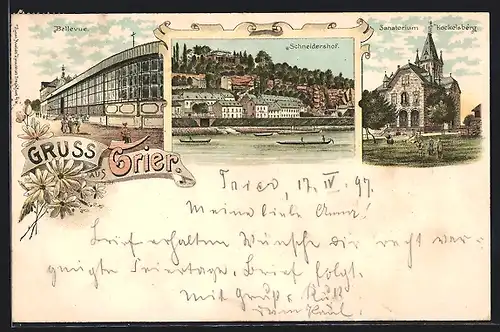 Bellevue.
Schneidershof.
Sanatorium Kockelsberg
GRUSS
AUS
Trier.
Trier, 17. IV. 97.
Meine liebe Anna!
Brief erhalten. Wünsche dir recht ver-
gnügte Feiertage. Brief folgt.
Mit Gruß u. Kuß
dein Paul.